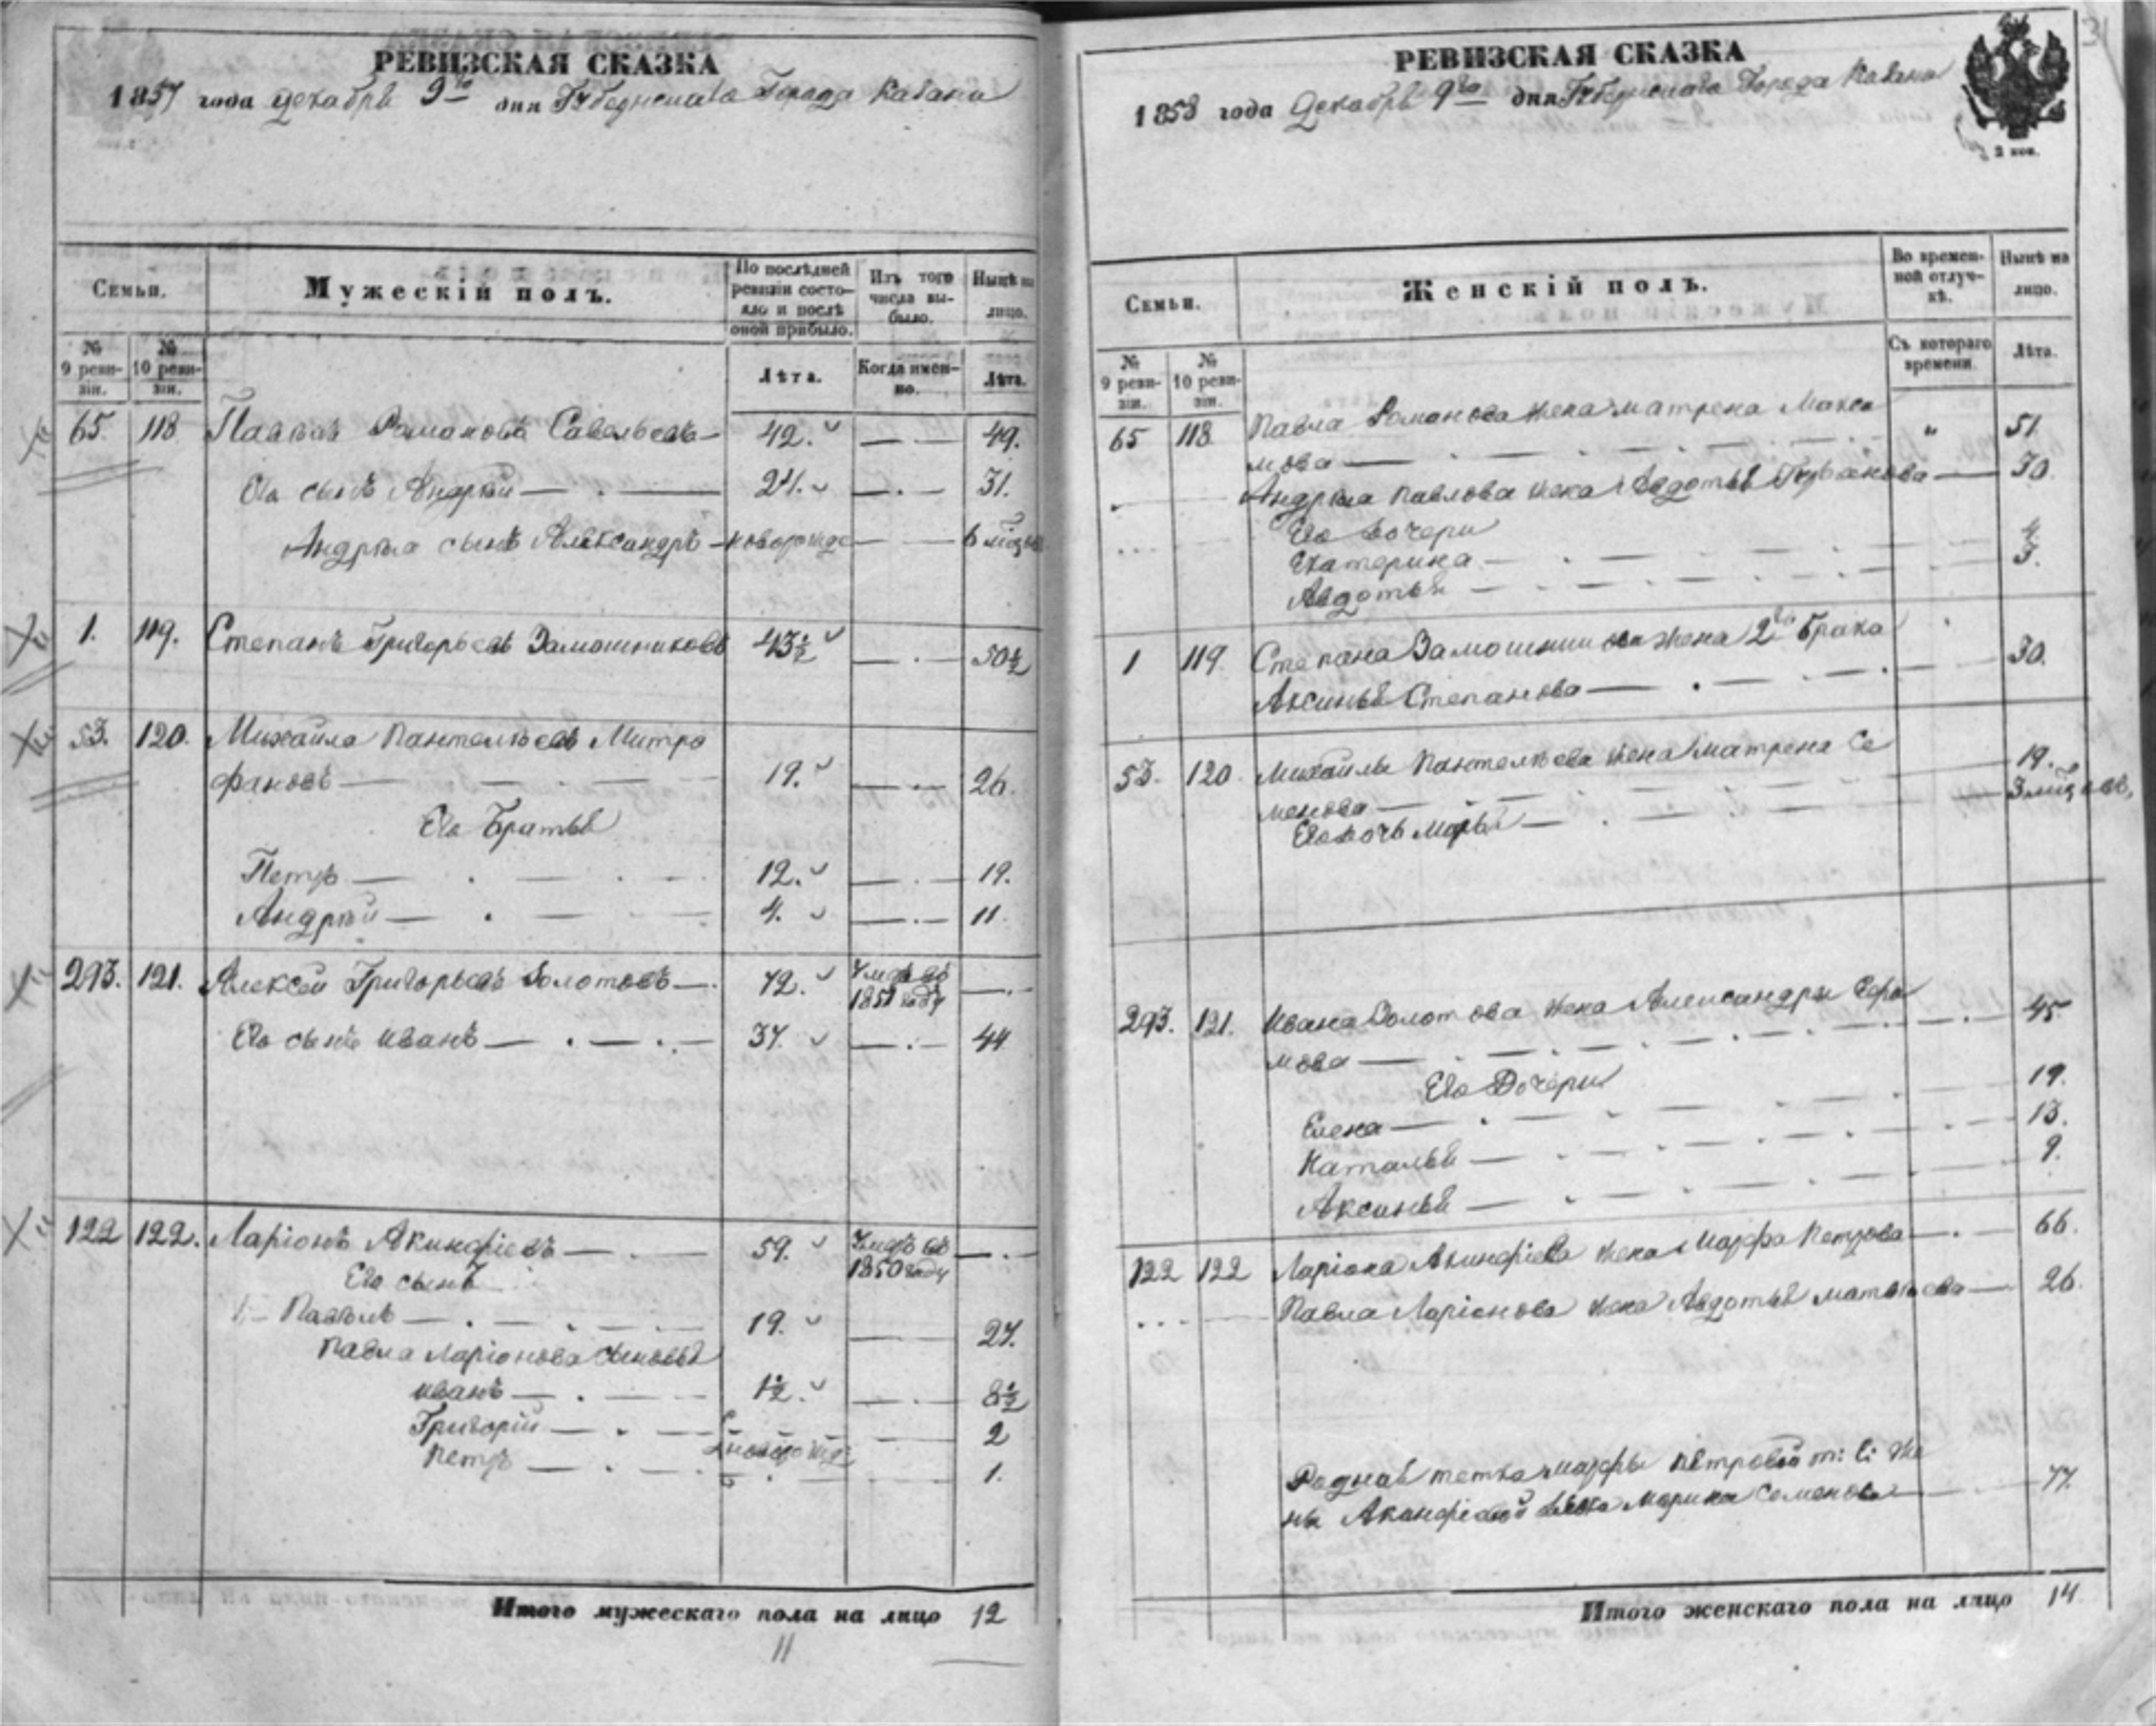 РЕВИЗСКАЯ СКАЗКА
1857 года Декабря 9го дня Губернскаго Города Казани
Семьи.
Мужескій полъ.
По послѣдней ревизіи состояло и послѣ оной прибыло.
Изъ того числа выбыло.
Нынѣ на лицо.
№ 9 ревизіи.
№ 10 ревизіи.
Лѣта.
Когда именно.
Лѣта.
65. 118 Павелъ Романовъ Савельевъ 42. 49.
Его сынъ Андрѣй 24. 31.
Андрѣя сынъ Александръ новорожде 6 мѣсяц
1. 119. Степанъ Григорьевъ Замошниковъ 43½ 50½
53. 120. Михайла Пантелѣевъ Митро
фановъ 19. 26.
Его Братья
Петръ 12. 19.
Андрѣй 4. 11.
293. 121. Алексѣй Григорьевъ Золотовъ 72. Умеръ въ 1851 году
Его сынъ Иванъ 37. 44
122 122. Ларіонъ Акинфіевъ 59. Умеръ въ 1850 году
Его сынъ
1. Павелъ 19. 27.
Павла Ларіонова сыновья
Иванъ 1½. 8½
Григорій 2
Петръ новорожд 1.
Итого мужескаго пола на лицо 12
11
РЕВИЗСКАЯ СКАЗКА
1858 года Декабря 9го дня Губернскаго Города Казани
2 коп.
Семьи.
Женскій полъ.
Во временной отлучкѣ.
Нынѣ на лицо.
№ 9 ревизіи.
№ 10 ревизіи.
Съ котораго времени.
Лѣта.
65 118 Павла Романова жена Матрена Макси
мова 51.
Андрѣя Павлова жена Авдотья 30.
Его Дочери
Екатерина 4.
Авдотья 3.
1 119. Степана Замошникова жена 2го брака
Аксинья Степанова 30.
53. 120. Михайлы Пантелѣева жена Матрена Се
менова 19.
Его дочь Марья 3 мѣсяцовъ
293. 121. Ивана Золотова жена Александра Ефи
мова 45
Его Дочери
Елена 19.
Наталья 13.
Аксинья 9.
122 122 Ларіона Акинфіева жена Марфа Петрова 66.
Павла Ларіонова жена Авдотья Матвѣева 26.
Родная тетка Марфы Петровой т: е: же
ны Акинфіевой Марина Семенова 77.
Итого женскаго пола на лицо 14